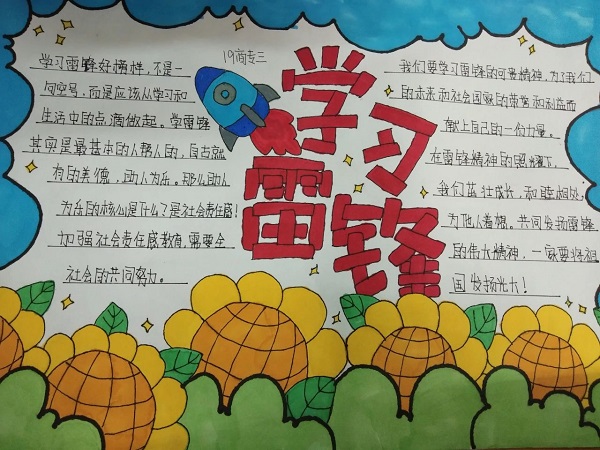 19商专三
学习雷锋
学习雷锋好榜样，不是一
句空号，而是应该从学习和
生活中的点滴做起。学雷锋
其实是最基本的人帮人的，自古就
有的美德，助人为乐。那么助人
为乐的核心是什么？是社会责任感！
加强社会责任感教育，需要全
社会的共同努力。
我们要学习雷锋的可贵精神，为了我们
的未来和社会国家的繁荣和创造而
献上自己的一份力量。
在雷锋精神的照耀下，
我们茁壮成长，和睦相处，
为他人着想。共同发扬雷锋
的伟大精神，一定要将祖
国发扬光大！